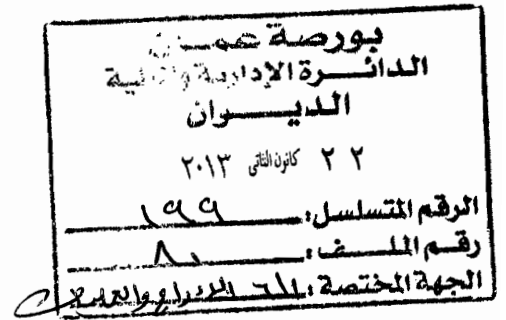 بورصة عمان
الدائرة الإدارية والمالية
الديوان
٢٢ كانون الثاني ٢٠١٣
الرقم المتسلسل: ١٩٩
رقم الملف:
الجهة المختصة: الإدراج